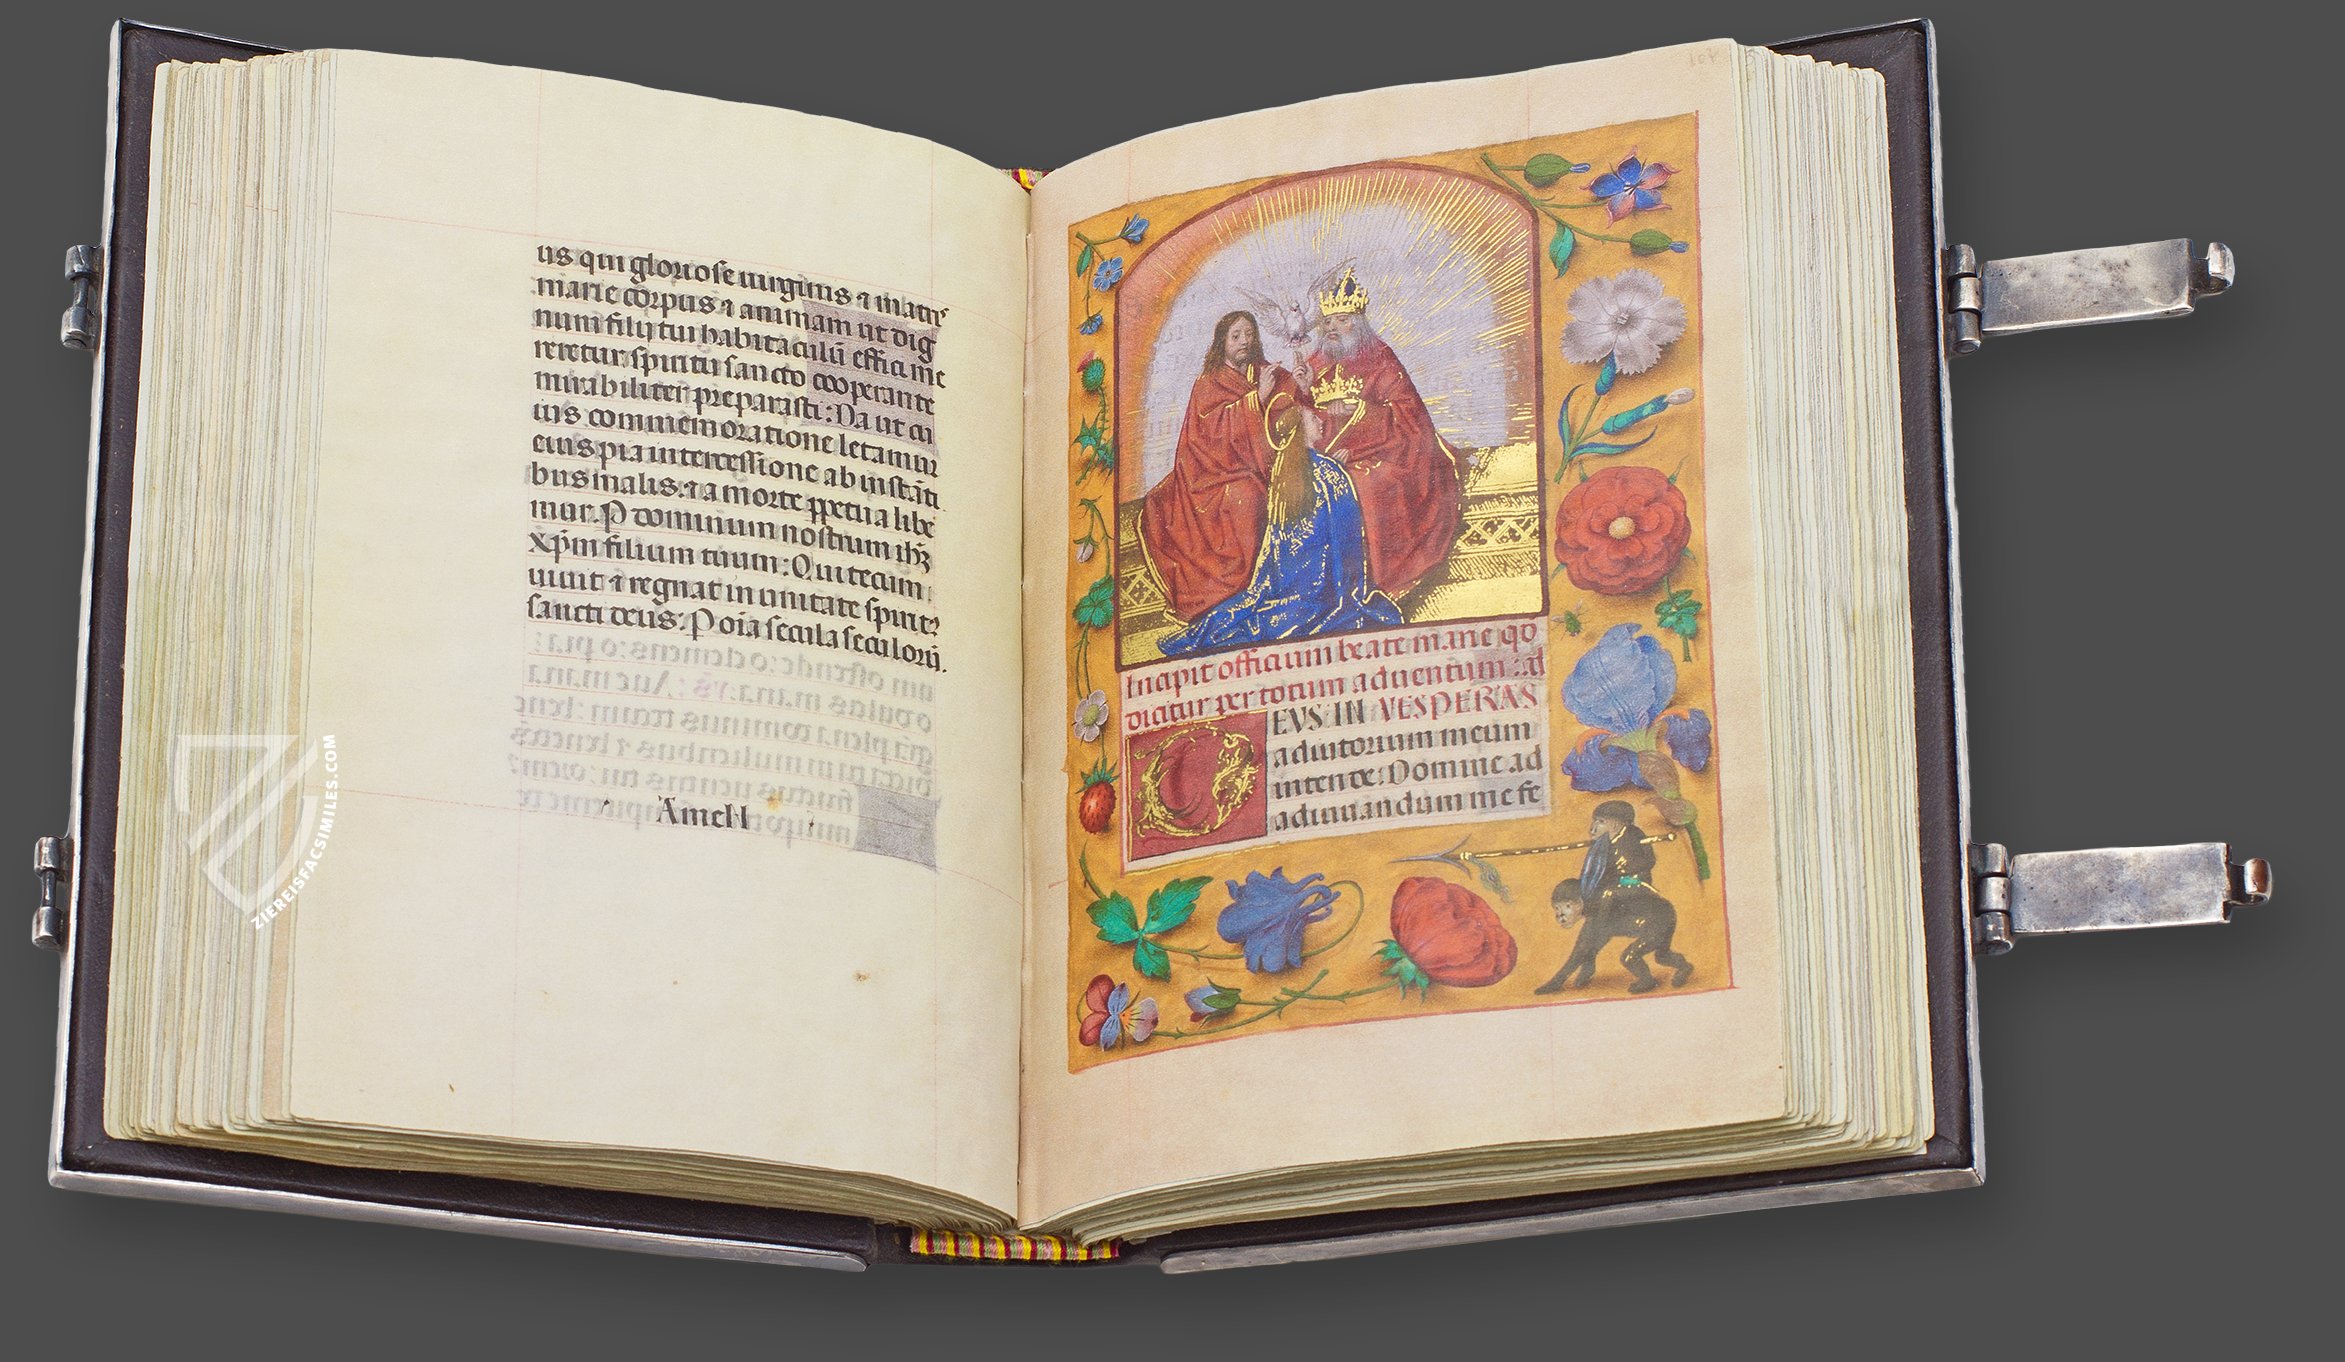 us qui gloriose uirginis ⁊ matris
marie corpus ⁊ animam ut dig
num filij tui habitaculū effici me
reretur spiritu sancto cooperante
mirabiliter preparasti: Da ut cu
ius commemoratione letamur
eius pia intercessione ab instāti
bus malis. ⁊ a morte ꝑpetua libe
mur. P dominum nostrum ihꝫ
xp̄m filium tuum: Qui tecum
uiuit ⁊ regnat in unitate spirit᷒
sancti deus. P oīa secula seculorū.
AmeN
Incipit officium beate marie qd̄
dicitur per totum aduentum: ad
DEVS IN VESPERAS
adiutorium meum
intende: Domine ad
adiuuandum me fe
ZIEREISFACSIMILES.COM